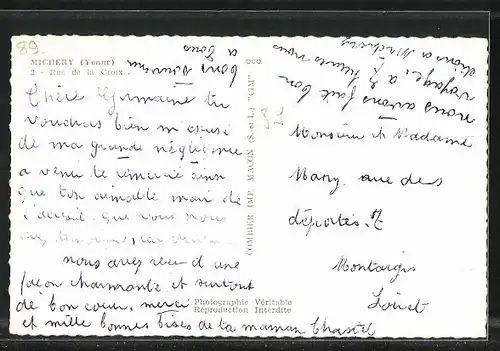 89.
MICHERY (Yonne)
2 - Rue de la Croix
Chère Germaine tu
voudras bien m'escusé
de ma grande négligence
a venir te remercié ainsi
que ton aimable mari de
l'acceuil que vous nous
avez
nous avez recu d'une
façon charmante et surtout
de bon coeur, merci
et mille bonnes bises de la maman Chastel
bons
a tous
nous avons fait bon
voyage, a 7 heures nous
étions a Michery
COMBIER IMP. MACON (S.-et-L.) "CIM"
Monsieur et Madame
Mary rue des
déportés 7
Montargis
Loiret
Photographie Véritable
Reproduction Interdite